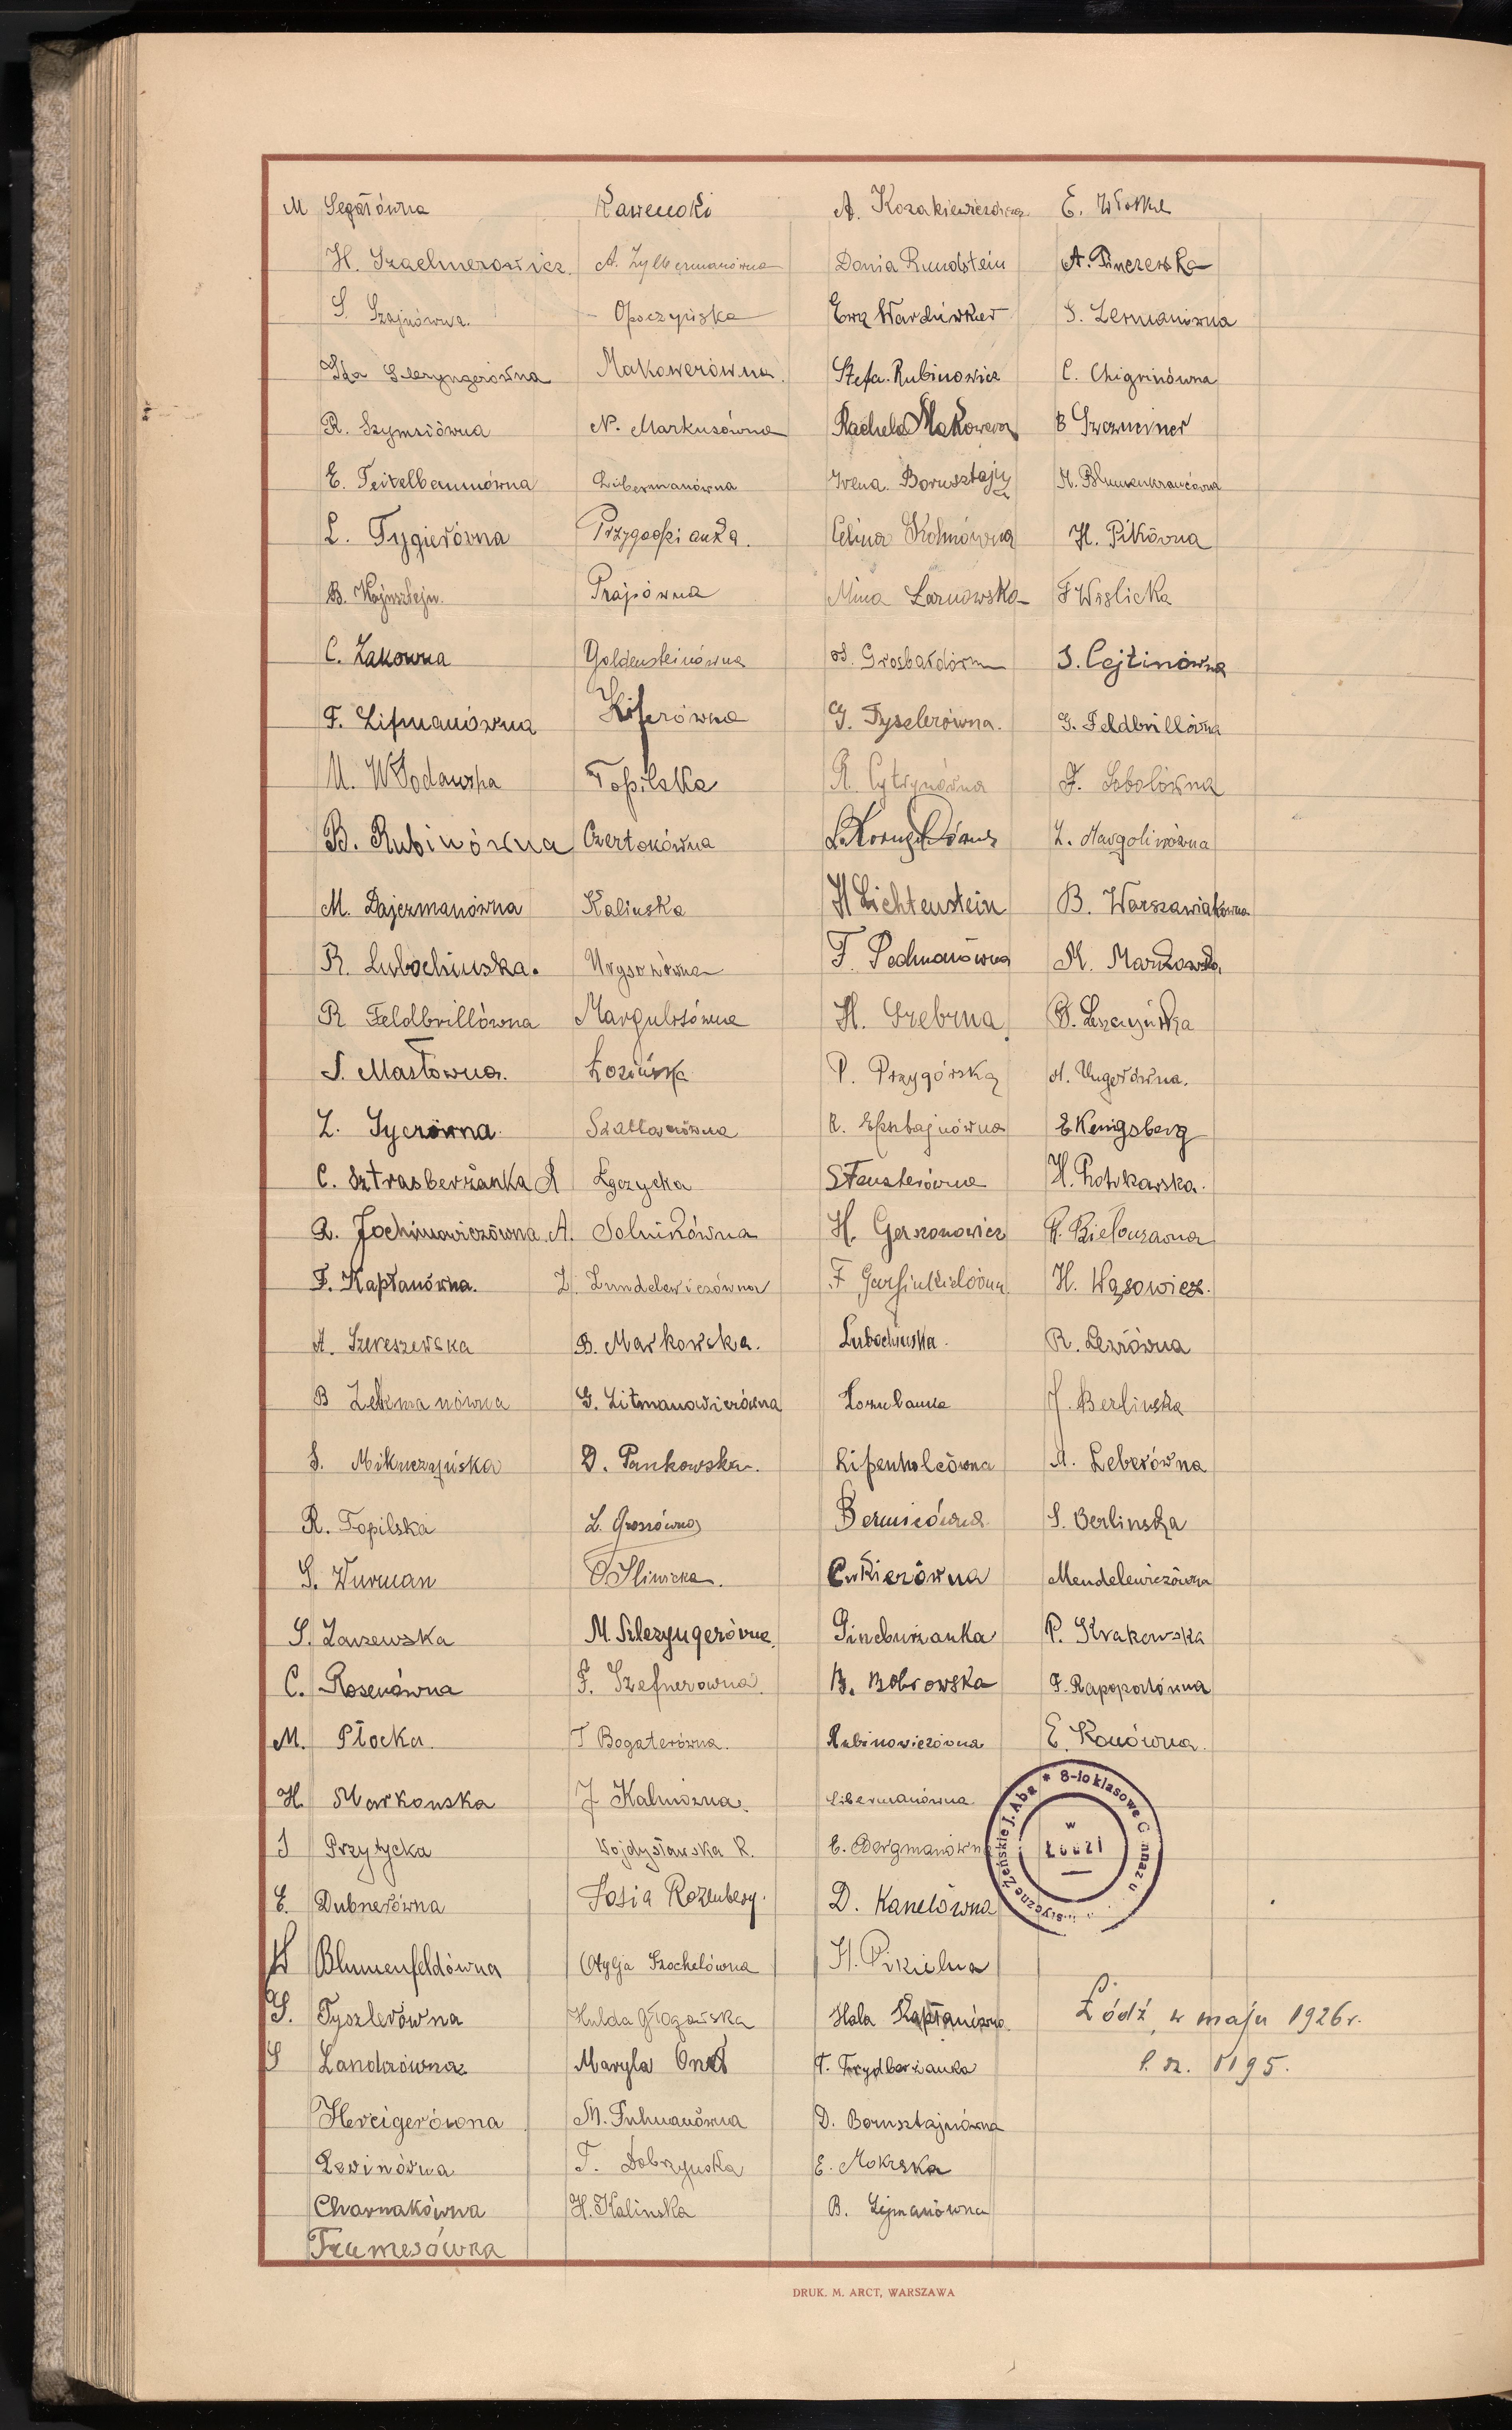 M Segałówna
H. Szaelmerowicz
S. Szajnówna.
Ida Szleryngerówna
R. Szymsiówna
E. Teitelbaumówna
L. Tygierówna
B. Wajnsztejn.
C. Żakowna
F. Lifmanówna
M. Włodawska
B. Rubinówna
M. Dajczmanówna
R. Lubochińska.
R Feldbrillówna
S. Masłowna.
Z. Sycrówna
C. Sztrasberżanka
R. Jochimowiczówna
F. Kapłanówna.
A. Szereszewska
B Lehmanówna
S. Mikuczyńska
R. Topilska
S. Wurman
S. Zarzewska
C. Rosenówna
M. Płocka.
H. Markowska
J Przytycka
E. Dubnerówna
W Blumenfeldówna
S. Tyszlerówna
S Landzówna
Hercigerówna
Lewinówna
Charnakówna
Trumesówna
Kawenoki
A. Zylbermanówna
Opoczyńska
Makowerówna
N. Markusówna
Libermanówna
Przygodzianka.
Prajsówna
Goldensteinówna
Kiperówna
Topilska
Czertokówna
Kalinska
Urysonówna
Margulisówna
Łozińska
Szattanówna
A Łęczycka
A. Solnikówna
Z. Zundelewiczówna
B. Markowska.
G. Litmanowiczówna
D. Pankowska.
L. Grossówna
O Sliwicka.
M. Szlezyngerówna
F. Szefnerowna.
T Bogaterówna.
J Kalmówna.
Wojdysławska R.
Zosia Rozenberg.
Otylja Szochetówna
Hulda Głogowska
Maryla Onas
M. Fuhmanówna
T. Dobrzynska
H. Kalinska
A. Kozakiewiczówna
Dania Rundstein
Ewa Wardinkier
Stefa. Rubinowicz
Rachela Makower
Irena Bornsztajn
Celina Kohnówna
Mina Sarnowska
S. Grosbardówna
G. Tyszlerówna.
R. Cytrynówna
H Lichtenstein
F. Pechmanówna
H. Srebrna
P. Przygórska
R. Epsztajnówna
S Fensterówna
H. Gerszonowicz
F Garfinkielówna
Lubochińska.
Lozubanka
Lipenholcówna
Bermicówna
Cukierówna
Gincburżanka
B. Bobrowska
Rubinowiczówna
Libermanówna
E. Bergmanówna
D. Kanelówna
H. Pikielna
Hala Kapłanówna
T. Frydberżanka
D. Bornsztajnówna
E. Mokrska
B. Lejmanówna
E. Włoske
A. Pinczewska
S. Lermanówna
C. Chigrinówna
B Szwarciner
H. Blumenkrancówna
H. Pikówna
F Wislicka
S. Cejtinówna
G. Feldbrillówna
F. Sobolówna
L. Margolinówna
B. Warszawiakówna
M. Markowska
B. Leszczyńska
A. Ungerówna.
E Kenigsberg
H. Piotrkowska.
R. Bielowzawna
H. Wąsowicz.
R. Lewówna
J. Berlinska
A. Leberówna
S. Berlinska
Mendelewiczówna
P. Krakowska
F. Rapoportówna
E. Konówna.
8-io klasowe Gimnazjum
w
Łodzi
Żeńskie J. Aba
Łódź, w maju 1926 r.
l. sz. 1195.
DRUK. M. ARCT, WARSZAWA